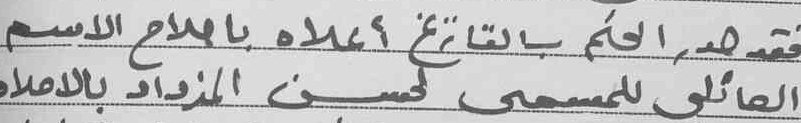 فقد صدر الحكم بالتاريخ أعلاه باصلاح الاسم
العائلي للمسمى لحسن المزداد بالاصلا